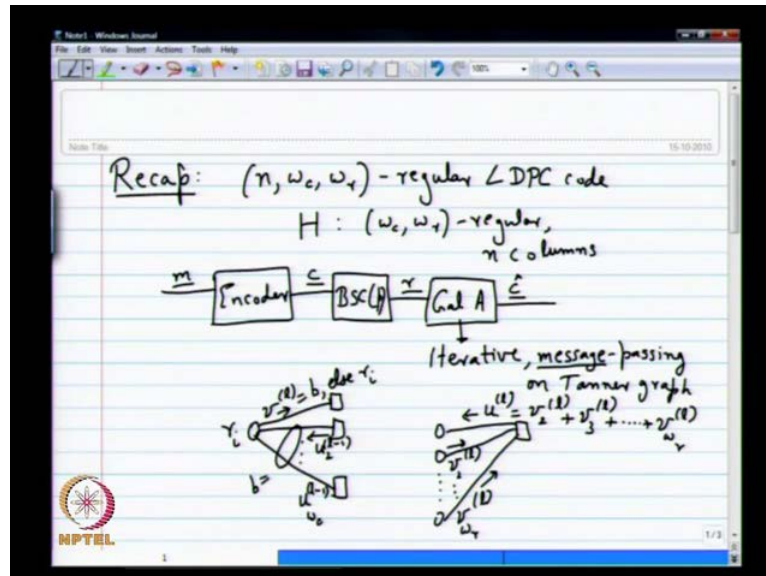 Note1 - Windows Journal
File Edit View Insert Actions Tools Help
100%
Note Title
15-10-2010
Recap: (n, w_c, w_r) - regular LDPC code
H : (w_c, w_r) - regular,
n columns
m Encoder c BSC(p) r Gal A ĉ
Iterative, message-passing
on Tanner graph
v^(l) = b, else r_i
r_i
u_2^(l-1)
b =
u_{w_c}^(l-1)
u^(l) = v_2^(l) + v_3^(l) + ..... + v_{w_r}^(l)
v_2^(l)
v_{w_r}^(l)
NPTEL
1
1/3